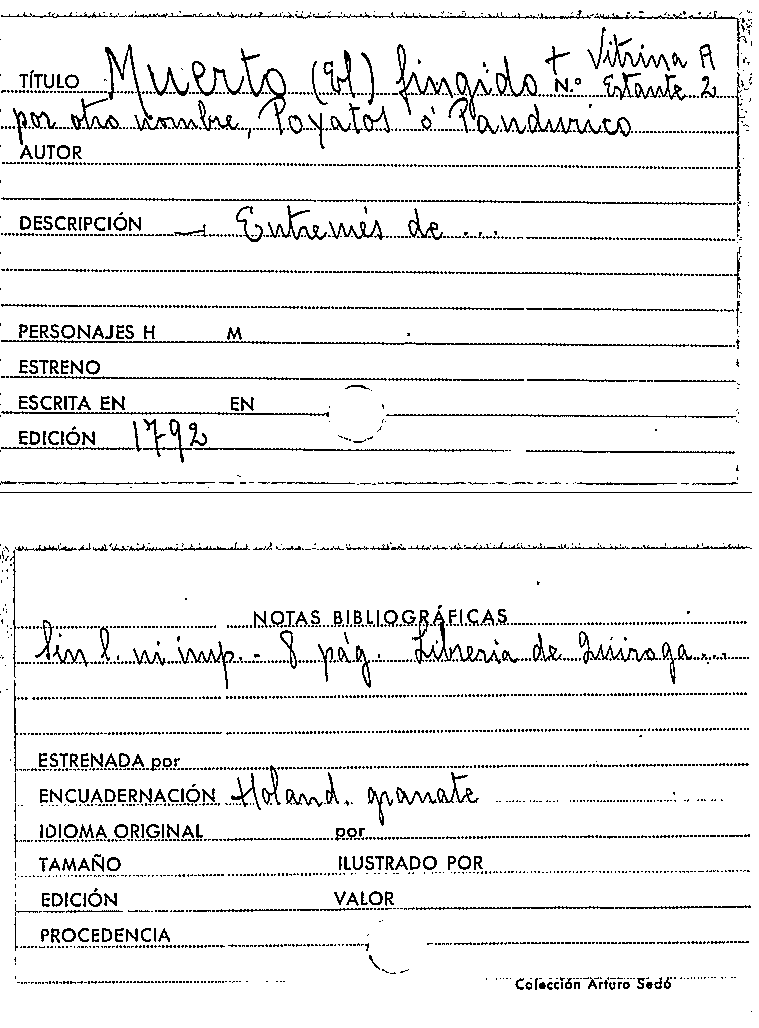 TÍTULO Muerto (El) fingido + Vitrina A
N.º Estante 2
por otro nombre, Poyatos ó Pandurico
AUTOR
DESCRIPCIÓN — Entremés de ...
PERSONAJES H M
ESTRENO
ESCRITA EN EN
EDICIÓN 1792
NOTAS BIBLIOGRÁFICAS
Sin l. ni imp. - 8 pág. Librería de Quiroga...
ESTRENADA por
ENCUADERNACIÓN Holand. granate
IDIOMA ORIGINAL por
TAMAÑO ILUSTRADO POR
EDICIÓN VALOR
PROCEDENCIA
Colección Arturo Sedó